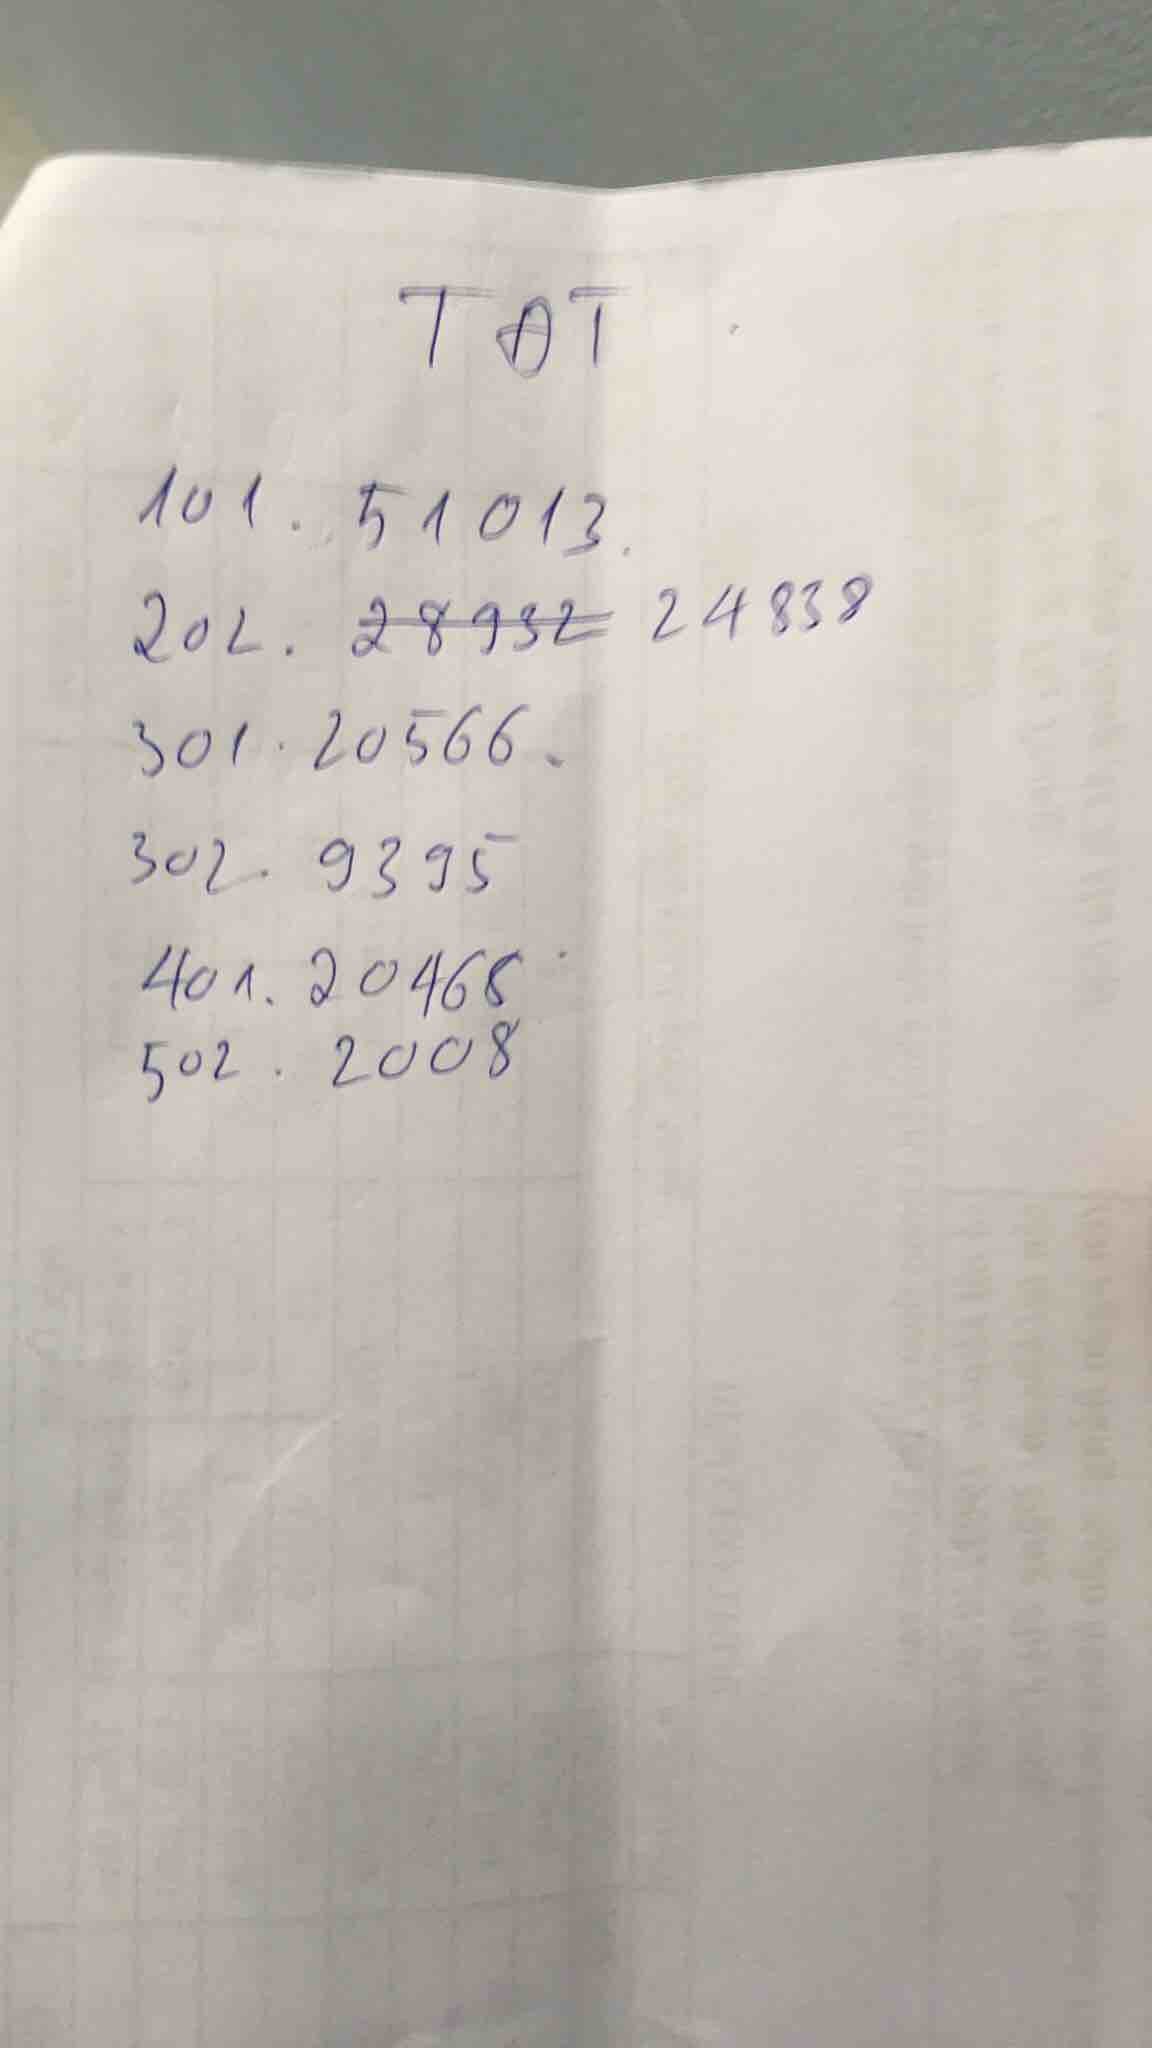 TOT
101. 51013.
202. 28932 24838
301. 20566.
302. 9395
401. 20468
502. 2008